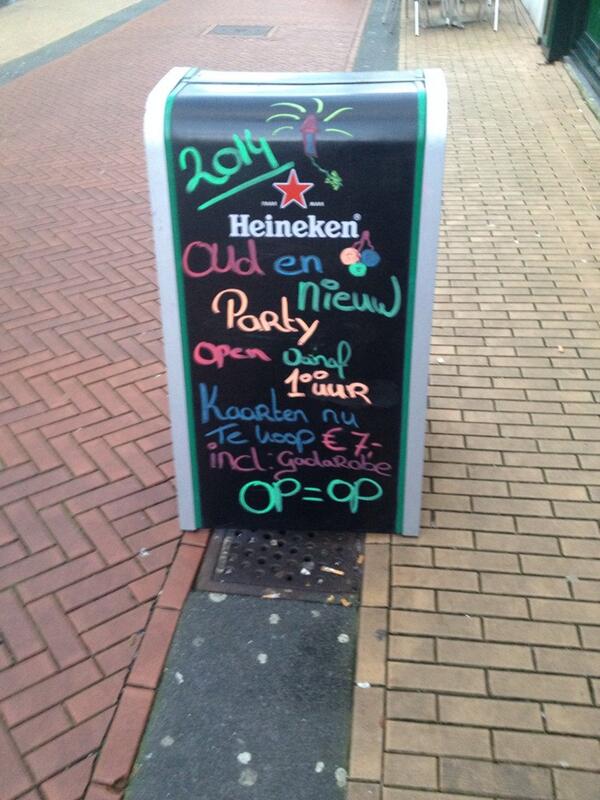 2014
Heineken®
Oud en
nieuw
Party
Open vanaf
1⁰⁰ uur
Kaarten nu
Te koop € 7,-
incl: Gadarobe
OP = OP